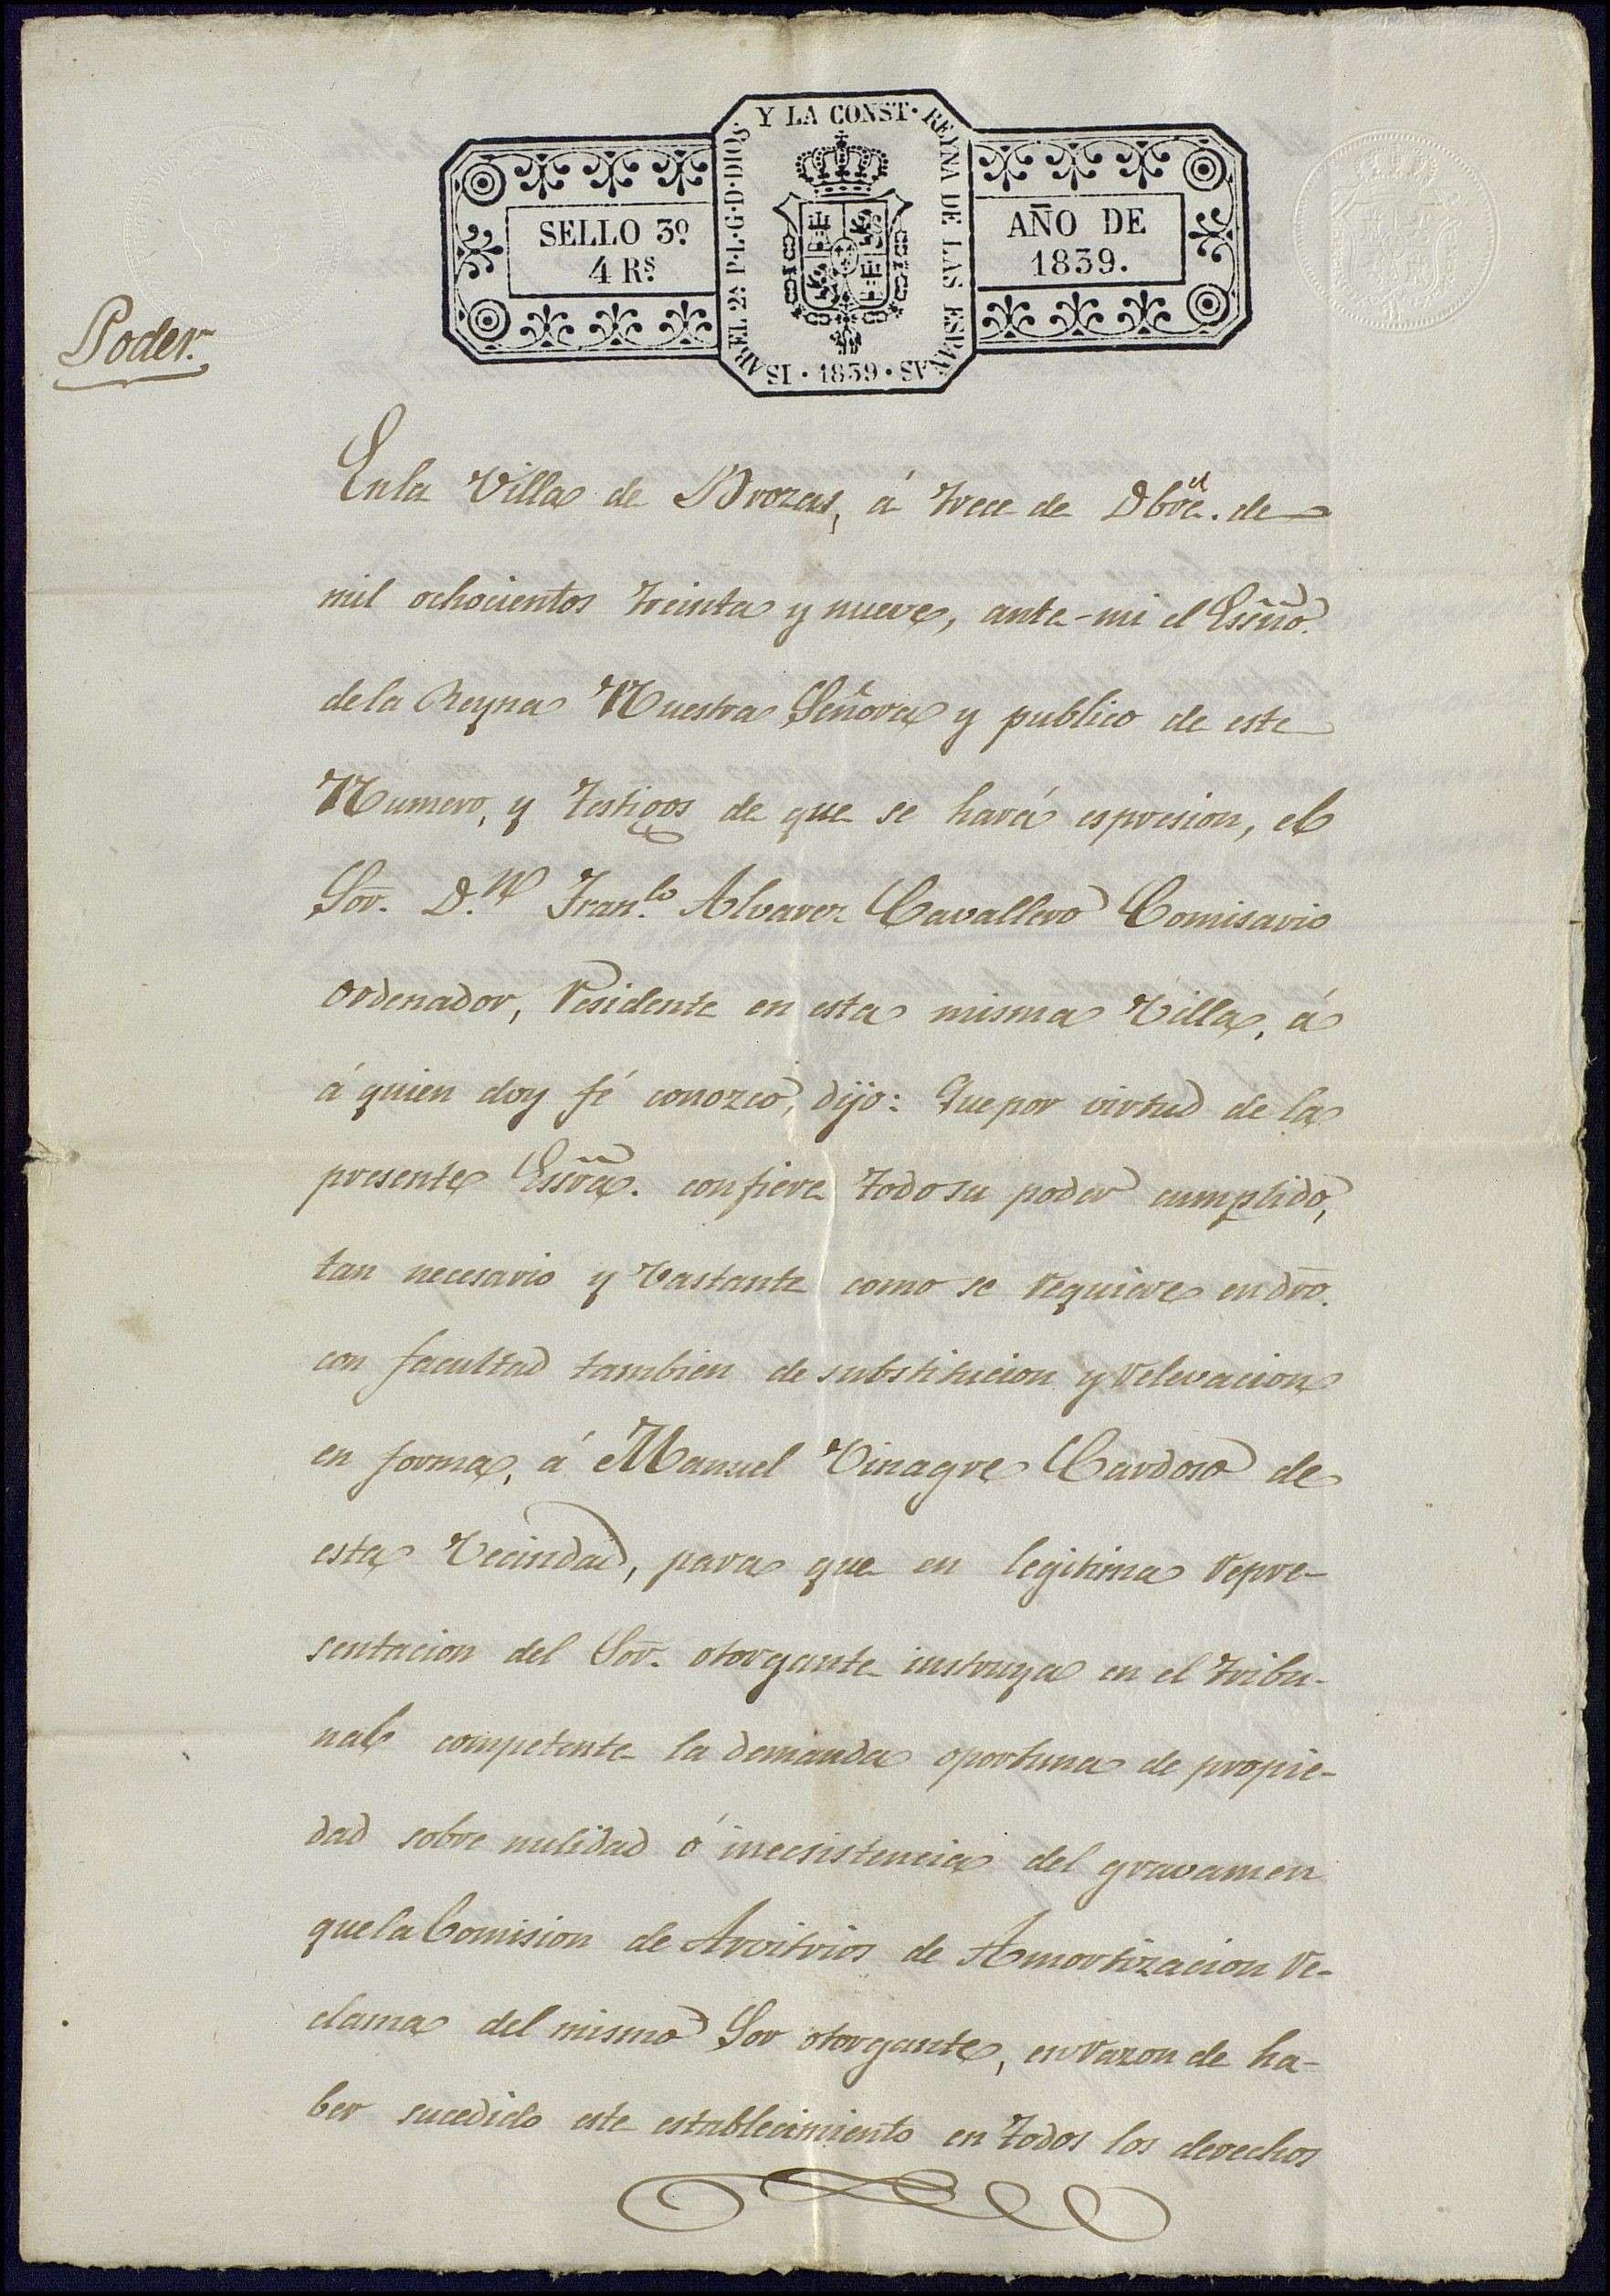 Y LA CONST. REYNA DE LAS ESPAÑAS
ISABEL 2ª P.L.G.D.DIOS
SELLO 3º
4 Rs.
AÑO DE
1839.
· 1839 ·
Poder.
En la Villa de Brozas, á trece de Dbre. de
mil ochocientos treinta y nueve, ante-mi el Essno.
de la Reyna Nuestra Señora y publico de este
Numero, y testigos de que se hará espresion, el
Sor. D.n Fran.co Alvarez Cavallero Comisario
Ordenador, residente en esta misma Villa, á
á quien doy fé conozco, dijo: Que por virtud de la
presente Essra. confiere todo su poder cumplido,
tan necesario y bastante como se requiere en dro.
con facultad tambien de substitucion y relevacion
en forma, á Manuel Vinagre Cardoso de
esta Vecindad, para que en legitima repre-
sentacion del Sor. otorgante instruya en el tribu-
nal competente la demanda oportuna de propie-
dad sobre nulidad ó inecsistencia del gravamen
que la Comision de Arvitrios de Amortizacion re-
clama del mismo Sor otorgante, en razon de ha-
ber sucedido este establecimiento en todos los derechos